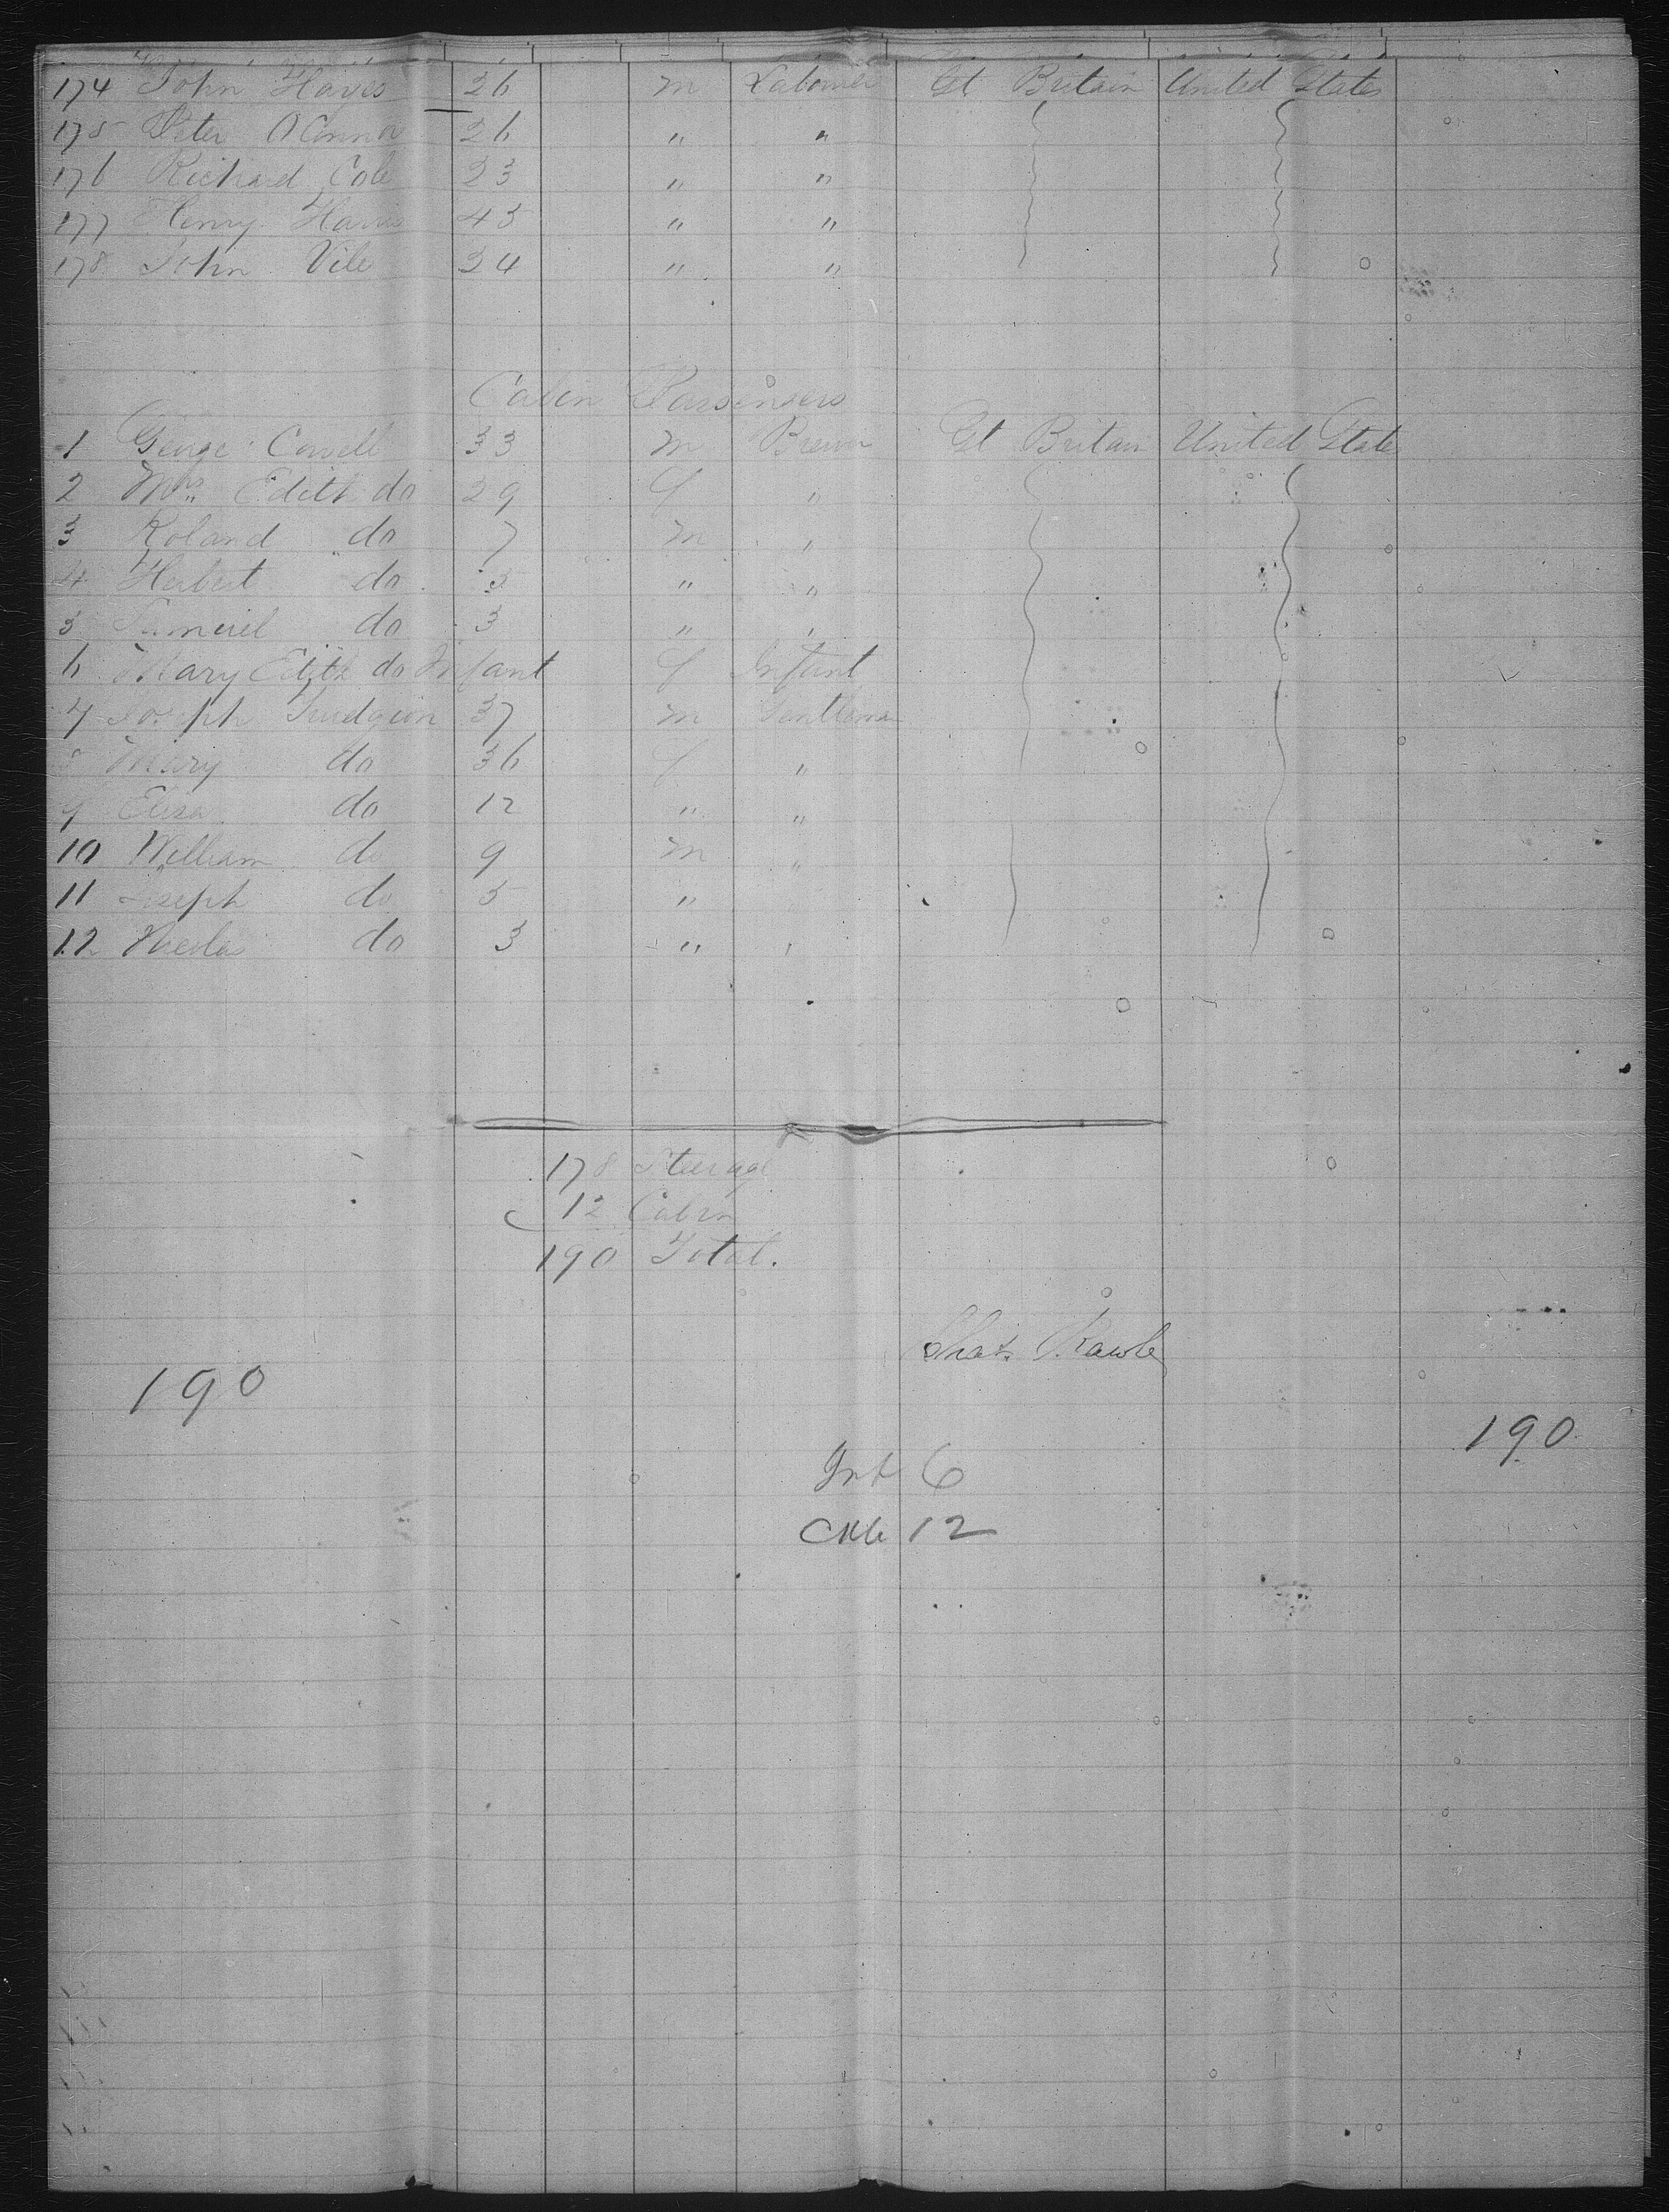 174 John Hayes 26 m Labourer Gt Britain United States
175 Peter O'Connor 26 " "
176 Richard Cole 23 " "
177 Henry Harris 45 " "
178 John Vile 34 " "
Cabin Passengers
1 George Cowell 33 m Brewer Gt Britain United States
2 Mrs Edith do 29 f "
3 Roland do 7 m "
4 Herbert do 5 " "
5 Samuel do 3 " "
6 Mary Edith do Infant f Infant
7 Joseph 37 m Gentleman
8 Mary do 36 f "
9 Eliza do 12 " "
10 William do 9 m "
11 Joseph do 5 "
12 do 3 " "
178 Steerage
12 Cabin
190 Total.
Chas. Rawle
190
190
Inf 6
12